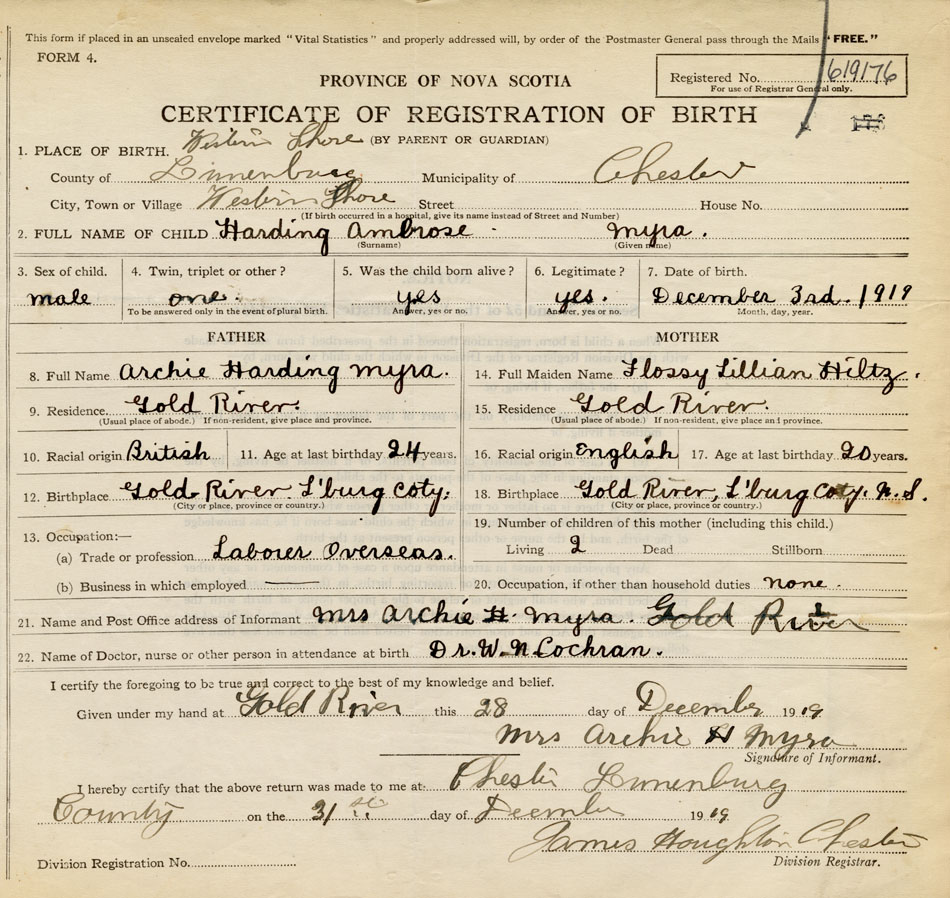 This form if placed in an unsealed envelope marked "Vital Statistics" and properly addressed will, by order of the Postmaster General pass through the Mails "FREE."
FORM 4.
Registered No. 619176
For use of Registrar General only.
PROVINCE OF NOVA SCOTIA
CERTIFICATE OF REGISTRATION OF BIRTH
(BY PARENT OR GUARDIAN)
1. PLACE OF BIRTH. Western Shore
County of Lunenburg Municipality of Chester
City, Town or Village Western Shore Street House No.
(If birth occurred in a hospital, give its name instead of Street and Number)
2. FULL NAME OF CHILD Harding Ambrose - Myra.
(Surname) (Given name)
3. Sex of child. 4. Twin, triplet or other? 5. Was the child born alive? 6. Legitimate? 7. Date of birth.
male one. yes yes. December 3rd. 1919
To be answered only in the event of plural birth. Answer, yes or no. Answer, yes or no. Month, day, year.
FATHER MOTHER
8. Full Name Archie Harding Myra. 14. Full Maiden Name Flossy Lillian Hiltz.
9. Residence. Gold River. 15. Residence Gold River.
(Usual place of abode.) If non-resident, give place and province. (Usual place of abode.) If non-resident, give place and province.
10. Racial origin British 11. Age at last birthday 24 years. 16. Racial origin English 17. Age at last birthday 20 years.
12. Birthplace Gold River. L'burg Coty. 18. Birthplace Gold River, L'burg Coty. N.S.
(City or place, province or country.) (City or place, province or country.)
13. Occupation:— 19. Number of children of this mother (including this child.)
(a) Trade or profession Labourer Overseas. Living 2 Dead Stillborn
(b) Business in which employed —— 20. Occupation, if other than household duties none.
21. Name and Post Office address of Informant Mrs Archie H. Myra. Gold River
22. Name of Doctor, nurse or other person in attendance at birth Dr. W. N. Cochran.
I certify the foregoing to be true and correct to the best of my knowledge and belief.
Given under my hand at Gold River this 28 day of December 1919
Mrs Archie H Myra
Signature of Informant.
I hereby certify that the above return was made to me at: Chester Lunenburg
County on the 31st day of December 1919
James Houghton Chester
Division Registrar.
Division Registration No.